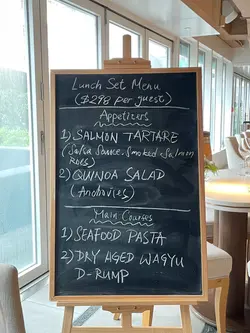 Lunch Set Menu
($298 per guest)
Appetizers
1) SALMON TARTARE
(Salsa Sauce, Smoked Salmon
Roes)
2) QUINOA SALAD
(Anchovies)
Main Courses
1) SEAFOOD PASTA
2) DRY AGED WAGYU
D-RUMP